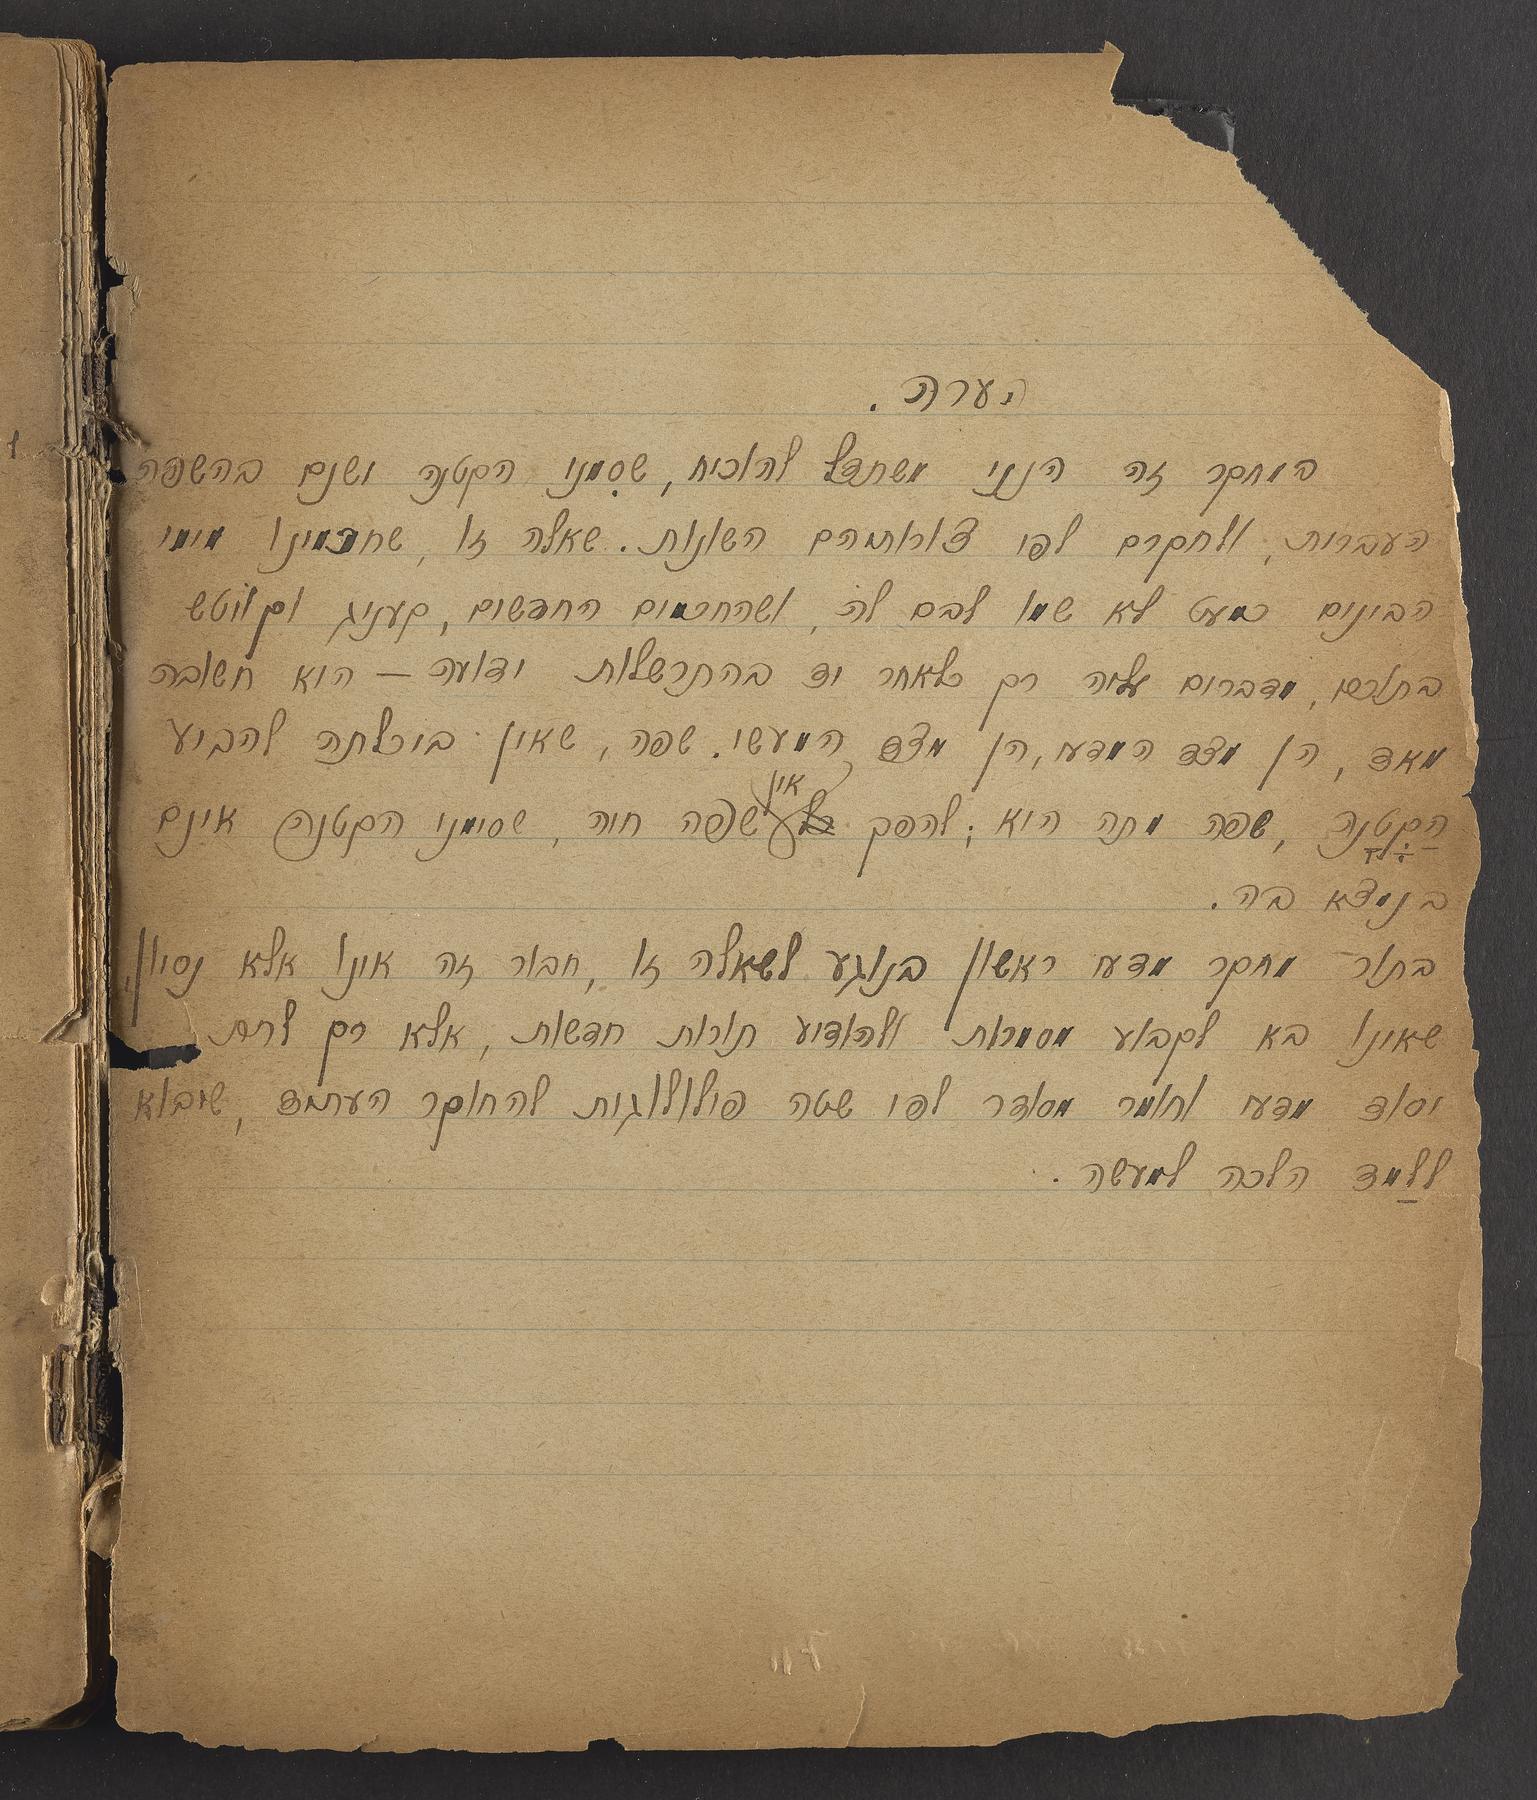 הערה.
במחקר זה הנני משתדל להוכיח, שסִמני הקטנה ישנם בהשפה
העברית, ולחקרם לפי צורותיהם השונות. שאלה זו, שחכמינו מימי
הבינים כמעט לא שמו לבם לה, ושהחכמים החפשים, קעניג וקויטש
בתורם, מדברים עליה רק כלאחר יד בהתרשלות ידועה – היא חשובה
מאד, הן מצד המדעי, הן מצד המעשי. שפה, שאין ביכלתה להביע
הקטנה, שפה מתה היא; להפך אין שפה חיה, שסימני הקטנה אינם
בנמצא בה.
בתור מחקר מדעי ראשון בנוגע לשאלה זו, חבור זה אינו אלא נסיון,
שאינו בא לקבוע מסמרות ולהודיע תורות חדשות, אלא רק לתת
יסוד מדעי וחומר מסודר לפי שטה פילולוגית להחוקר העתיד, שיבוא
ללמד הלכה למעשה.